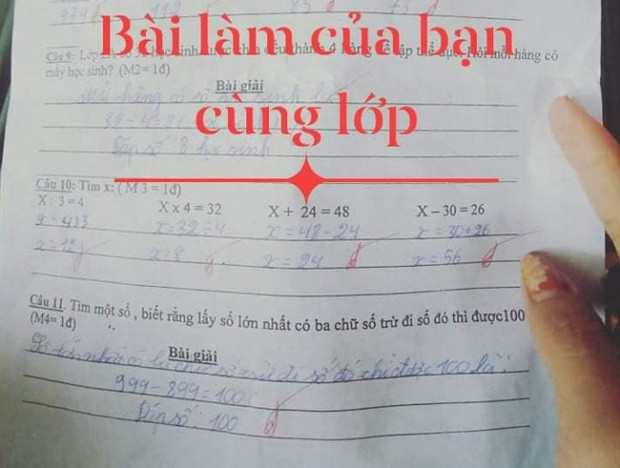 9748 112
Bài làm của bạn
cùng lớp
Câu 9: Lớp có học sinh được chia đều thành 4 hàng để tập thể dục. Hỏi mỗi hàng có
mấy học sinh? (M2=1đ)
Bài giải
hàng có số học sinh
32 4
Đáp số: 8 học sinh
Câu 10: Tìm x: ( M 3 = 1đ)
X : 3 = 4 X x 4 = 32 X + 24 = 48 X – 30 = 26
x = 4x3 x = 32 : 4 x = 48 - 24 x = 30+26
x = 12 x = 8 x = 24 x = 56
Câu 11. Tìm một số , biết rằng lấy số lớn nhất có ba chữ số trừ đi số đó thì được100
(M4= 1đ)
Bài giải
Số lớn nhất có ba chữ số trừ đi số đó thì được 100 là:
999 - 899 = 100
Đáp số: 100